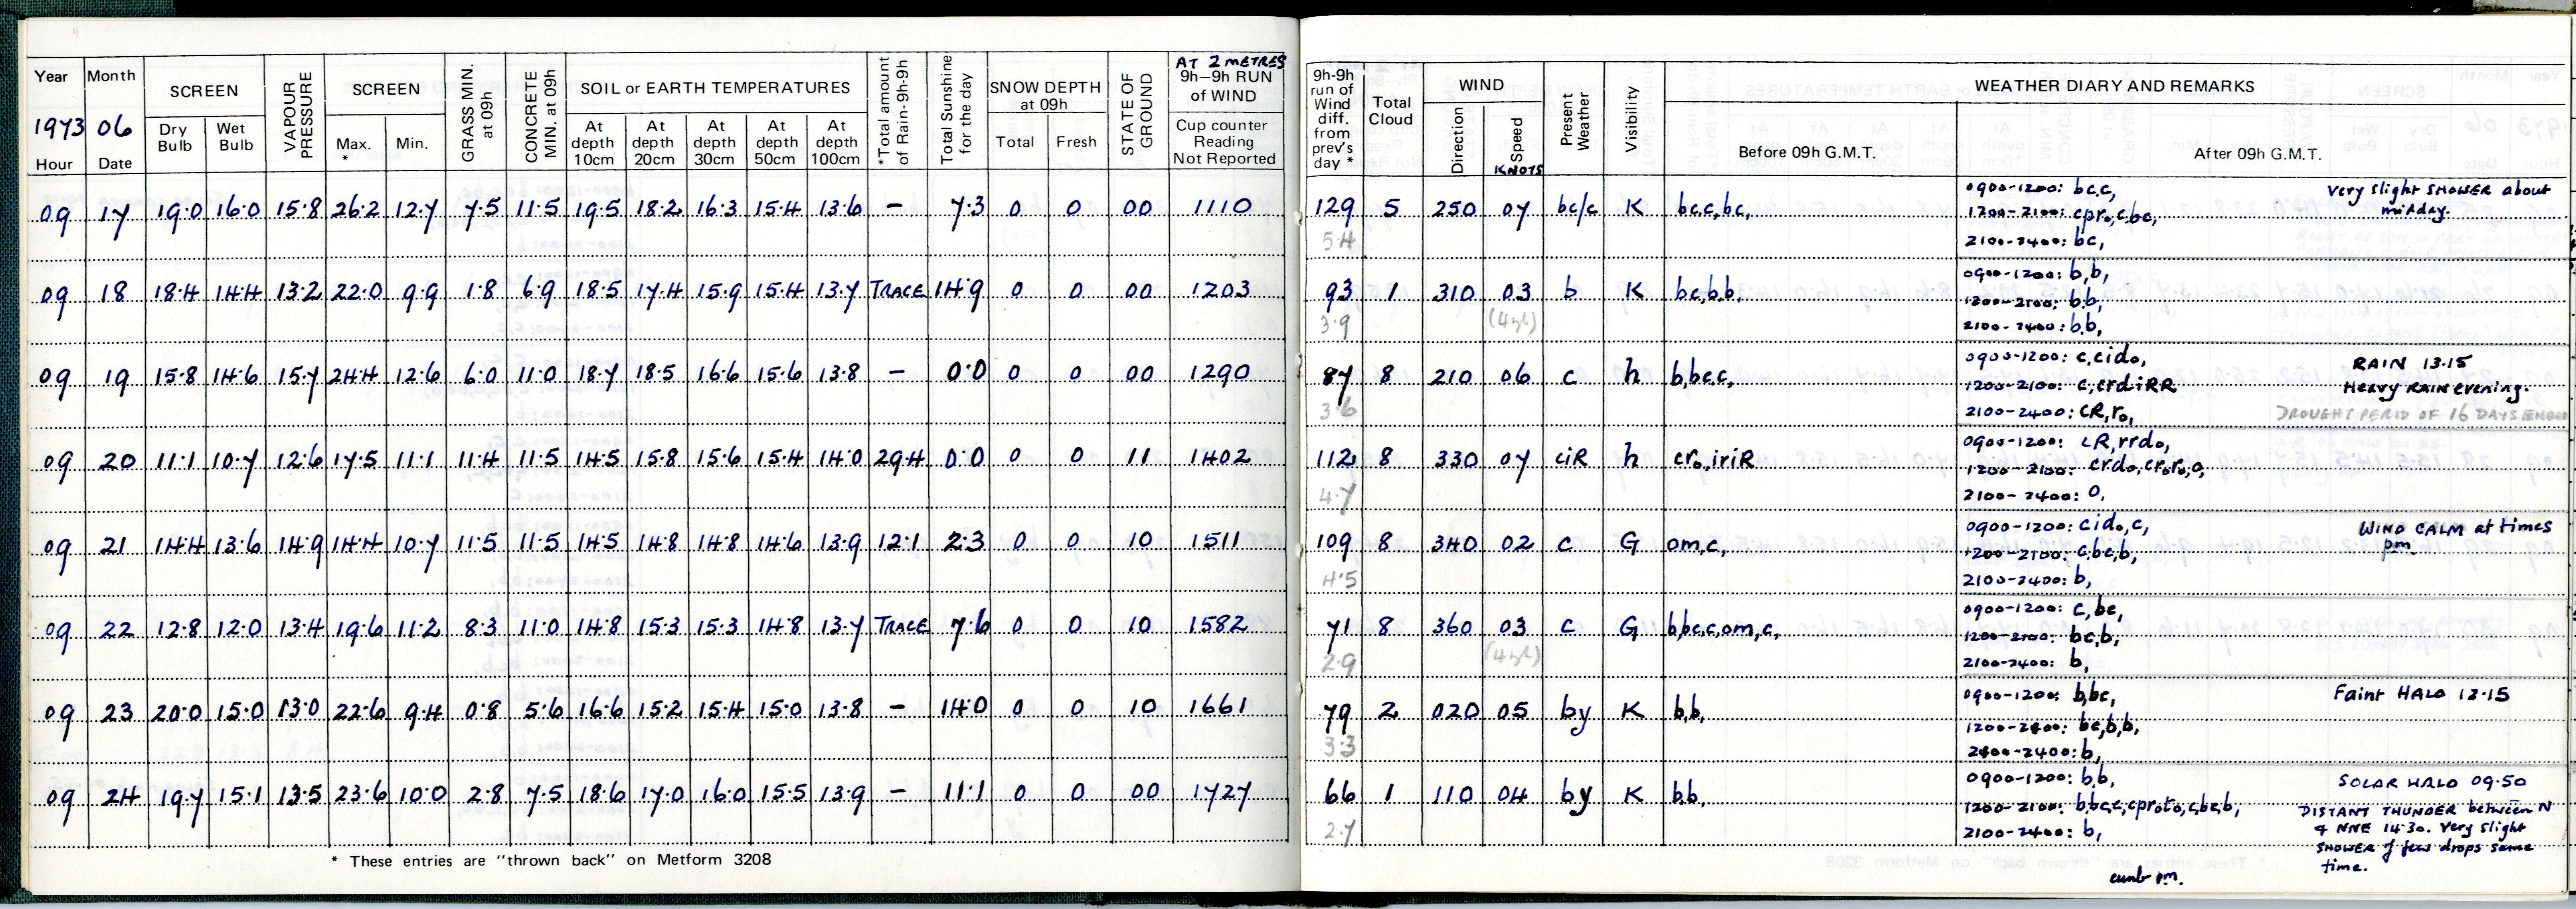 Year Month SCREEN VAPOUR PRESSURE SCREEN GRASS MIN. at 09h CONCRETE MIN. at 09h SOIL or EARTH TEMPERATURES *Total amount of Rain-9h-9h Total Sunshine for the day SNOW DEPTH at 09h STATE OF GROUND AT 2 METRES 9h-9h RUN of WIND
1973 06 Dry Bulb Wet Bulb Max. * Min. At depth 10cm At depth 20cm At depth 30cm At depth 50cm At depth 100cm Total Fresh Cup counter Reading Not Reported
Hour Date
09 17 19.0 16.0 15.8 26.2 12.7 7.5 11.5 19.5 18.2 16.3 15.4 13.6 - 7.3 0 0 00 1110
09 18 18.4 14.4 13.2 22.0 9.9 1.8 6.9 18.5 17.4 15.9 15.4 13.7 TRACE 14.9 0 0 00 1203
09 19 15.8 14.6 15.7 24.4 12.6 6.0 11.0 18.7 18.5 16.6 15.6 13.8 - 0.0 0 0 00 1290
09 20 11.1 10.7 12.6 17.5 11.1 11.4 11.5 14.5 15.8 15.6 15.4 14.0 29.4 0.0 0 0 11 1402
09 21 14.4 13.6 14.9 14.4 10.7 11.5 11.5 14.5 14.8 14.8 14.6 13.9 12.1 2.3 0 0 10 1511
09 22 12.8 12.0 13.4 19.6 11.2 8.3 11.0 14.8 15.3 15.3 14.8 13.7 TRACE 7.6 0 0 10 1582
09 23 20.0 15.0 13.0 22.6 9.4 0.8 5.6 16.6 15.2 15.4 15.0 13.8 - 14.0 0 0 10 1661
09 24 19.7 15.1 13.5 23.6 10.0 2.8 7.5 18.6 17.0 16.0 15.5 13.9 - 11.1 0 0 00 1727
* These entries are "thrown back" on Metform 3208
9h-9h run of Wind diff. from prev's day * Total Cloud WIND Present Weather Visibility WEATHER DIARY AND REMARKS
Direction Speed KNOTS Before 09h G.M.T. After 09h G.M.T.
129 5 250 07 bc/c K bc,c,bc, 0900-1200: bc,c, Very slight SHOWER about
1200-2100: cpr₀,c,bc, midday.
5.4 2100-2400: bc,
93 1 310 03 b K bc,b,b, 0900-1200: b,b,
1200-2100: b,b,
3.9 2100-2400: b,b,
87 8 210 06 c h b,bc,c, 0900-1200: c,cid₀, RAIN 13.15
1200-2100: c,crdiRR Heavy RAIN evening.
3.6 2100-2400: cR,r₀, DROUGHT PERID OF 16 DAYS ENDED
112 8 330 07 ciR h cr₀,iriR 0900-1200: cR,rrd₀,
1200-2100: crd₀,cr₀r₀,o,
4.7 2100-2400: o,
109 8 340 02 c G om,c, 0900-1200: cid₀,c, WIND CALM at times
1200-2100: c,bc,b, pm
4.5 2100-2400: b,
71 8 360 03 c G b,bc,c,om,c, 0900-1200: c,bc,
1200-2100: bc,b,
2.9 2100-2400: b,
79 2 020 05 by K b,b, 0900-1200: b,bc, Faint HALO 12.15
bc,b,b,
3.3 b,
66 1 110 04 by K b,b, 0900-1200: b,b, SOLAR HALO 09.50
1200-2100: b,bc,c,cpr₀t₀,c,bc,b, DISTANT THUNDER between N
2.7 2100-2400: b, & NNE 14.30. Very slight
SHOWER of few drops same
time.
cunb pm.